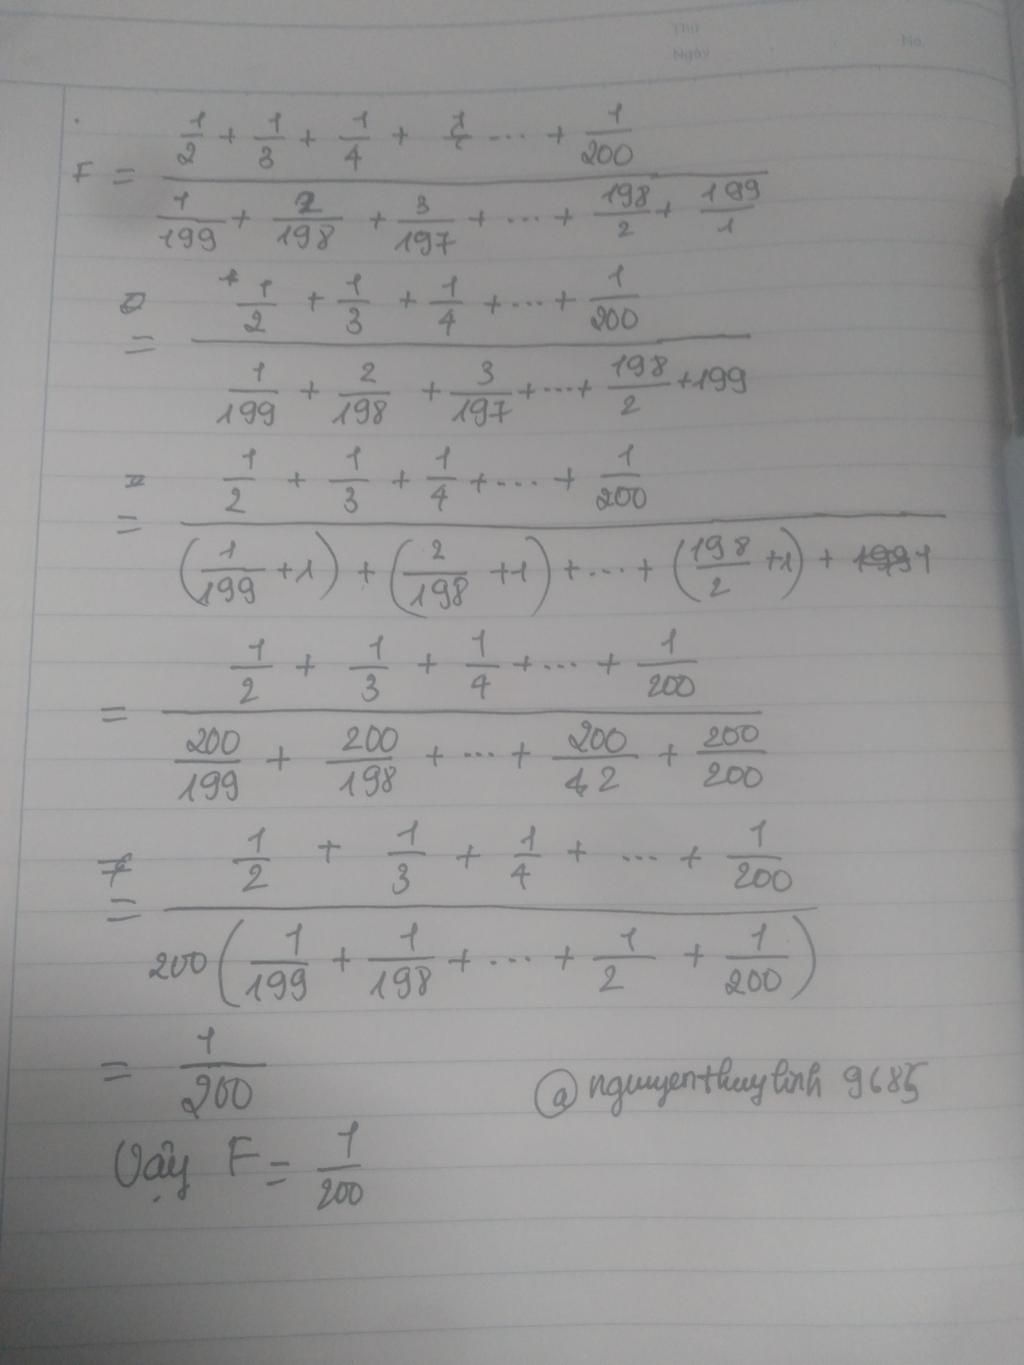 Thứ
Ngày No.
F = \frac{\frac{1}{2} + \frac{1}{3} + \frac{1}{4} + ... + \frac{1}{200}}{\frac{1}{199} + \frac{2}{198} + \frac{3}{197} + ... + \frac{198}{2} + \frac{199}{1}}
= \frac{\frac{1}{2} + \frac{1}{3} + \frac{1}{4} + ... + \frac{1}{200}}{\frac{1}{199} + \frac{2}{198} + \frac{3}{197} + ... + \frac{198}{2} + 199}
= \frac{\frac{1}{2} + \frac{1}{3} + \frac{1}{4} + ... + \frac{1}{200}}{(\frac{1}{199} + 1) + (\frac{2}{198} + 1) + ... + (\frac{198}{2} + 1) + 1}
= \frac{\frac{1}{2} + \frac{1}{3} + \frac{1}{4} + ... + \frac{1}{200}}{\frac{200}{199} + \frac{200}{198} + ... + \frac{200}{2} + \frac{200}{200}}
= \frac{\frac{1}{2} + \frac{1}{3} + \frac{1}{4} + ... + \frac{1}{200}}{200(\frac{1}{199} + \frac{1}{198} + ... + \frac{1}{2} + \frac{1}{200})}
= \frac{1}{200}
@nguyenthuylinh 9685
Vậy F = \frac{1}{200}